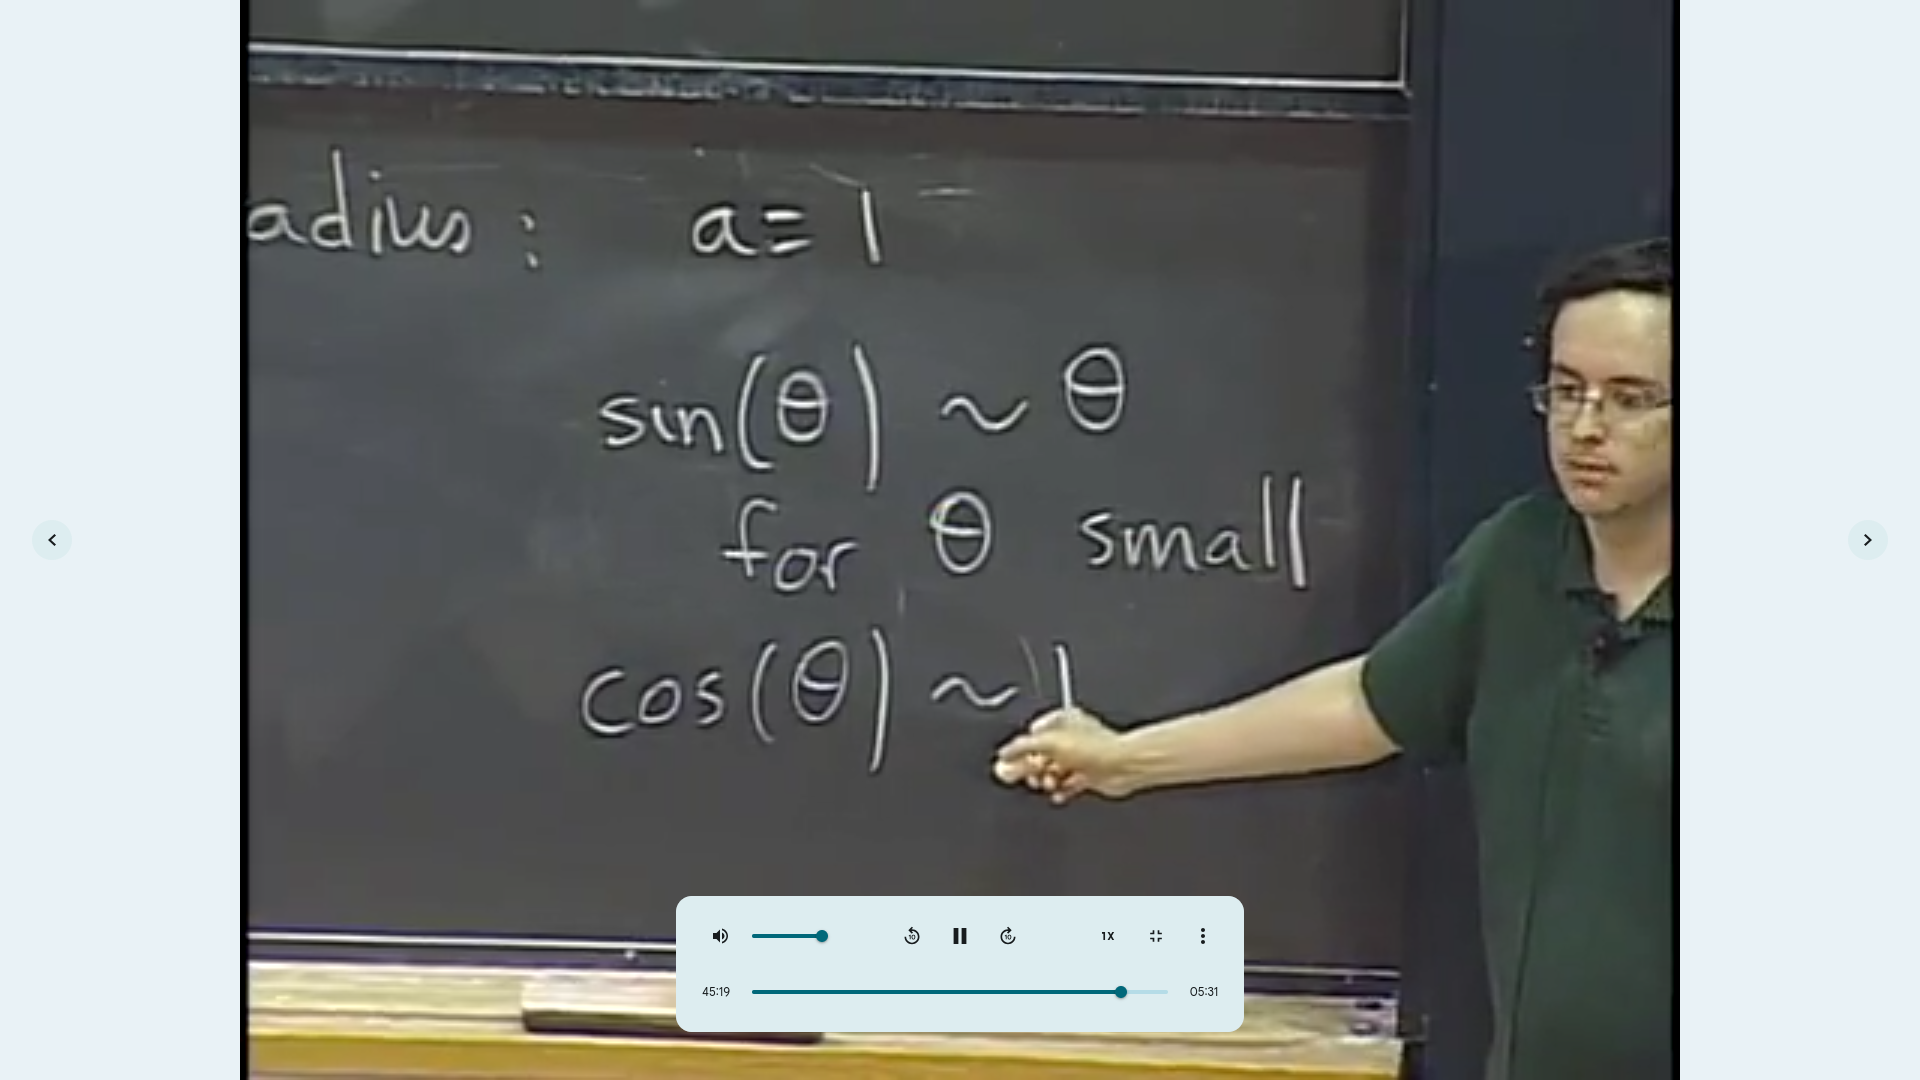 adius: a = 1
sin(θ) ~ θ
for θ small
cos(θ) ~ 1
10
10
1X
45:19
05:31